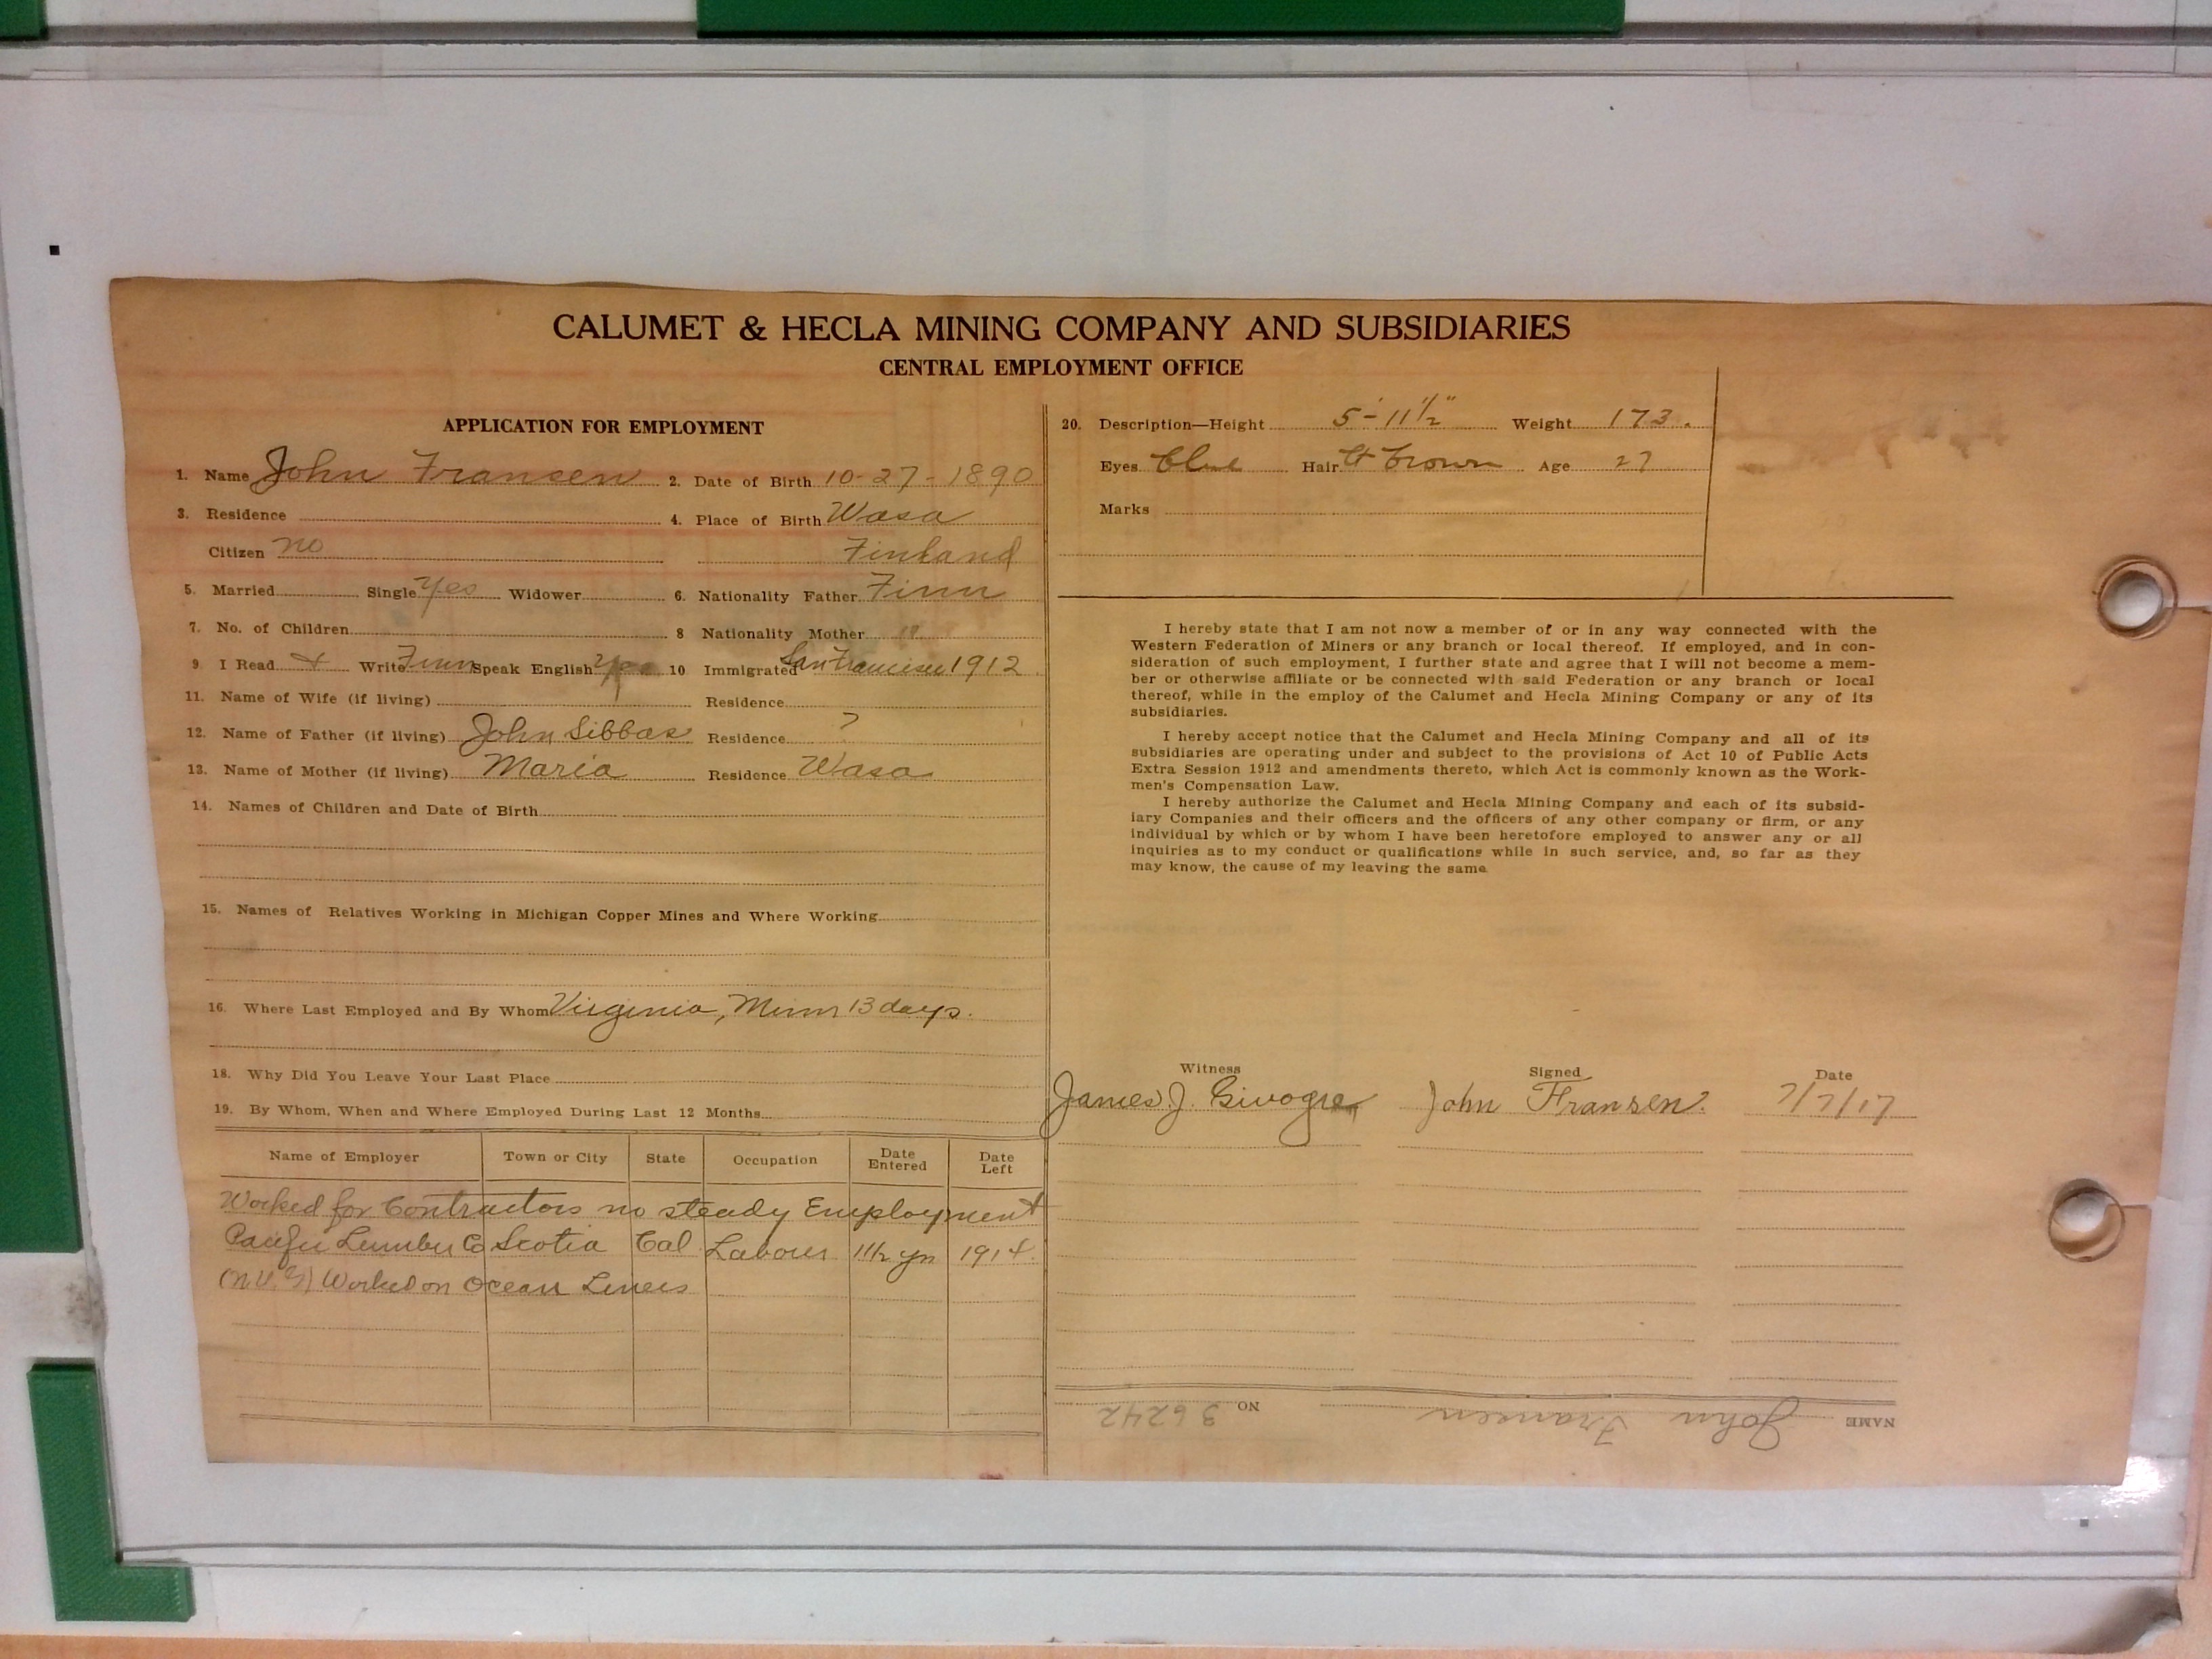 CALUMET & HECLA MINING COMPANY AND SUBSIDIARIES
CENTRAL EMPLOYMENT OFFICE
APPLICATION FOR EMPLOYMENT
1. Name John Fransen 2. Date of Birth 10-27-1890
3. Residence 4. Place of Birth Wasa
Citizen no Finland
5. Married Single Yes Widower 6. Nationality Father Finn
7. No. of Children 8 Nationality Mother "
9. I Read & Write Finn Speak English Yes 10 Immigrated San Francisco 1912
11. Name of Wife (if living) Residence
12. Name of Father (if living) John Sibbas Residence ?
13. Name of Mother (if living) Maria Residence Wasa
14. Names of Children and Date of Birth
15. Names of Relatives Working in Michigan Copper Mines and Where Working
16. Where Last Employed and By Whom Virginia, Minn 13 days.
18. Why Did You Leave Your Last Place
19. By Whom, When and Where Employed During Last 12 Months
Name of Employer Town or City State Occupation Date Entered Date Left
Worked for Contractors no steady Employment
Pacific Lumber Co Scotia Cal Labourer 1 1/2 yr 1914
Worked on Ocean Liners
20. Description—Height 5'-11 1/2" Weight 173.
Eyes Blue Hair Lt Brown Age 27
Marks
I hereby state that I am not now a member of or in any way connected with the
Western Federation of Miners or any branch or local thereof. If employed, and in con-
sideration of such employment, I further state and agree that I will not become a mem-
ber or otherwise affiliate or be connected with said Federation or any branch or local
thereof, while in the employ of the Calumet and Hecla Mining Company or any of its
subsidiaries.
I hereby accept notice that the Calumet and Hecla Mining Company and all of its
subsidiaries are operating under and subject to the provisions of Act 10 of Public Acts
Extra Session 1912 and amendments thereto, which Act is commonly known as the Work-
men's Compensation Law.
I hereby authorize the Calumet and Hecla Mining Company and each of its subsid-
iary Companies and their officers and the officers of any other company or firm, or any
individual by which or by whom I have been heretofore employed to answer any or all
inquiries as to my conduct or qualifications while in such service, and, so far as they
may know, the cause of my leaving the same
Witness Signed Date
James J. John Fransen. 7/7/17
NAME John Fransen NO 36242